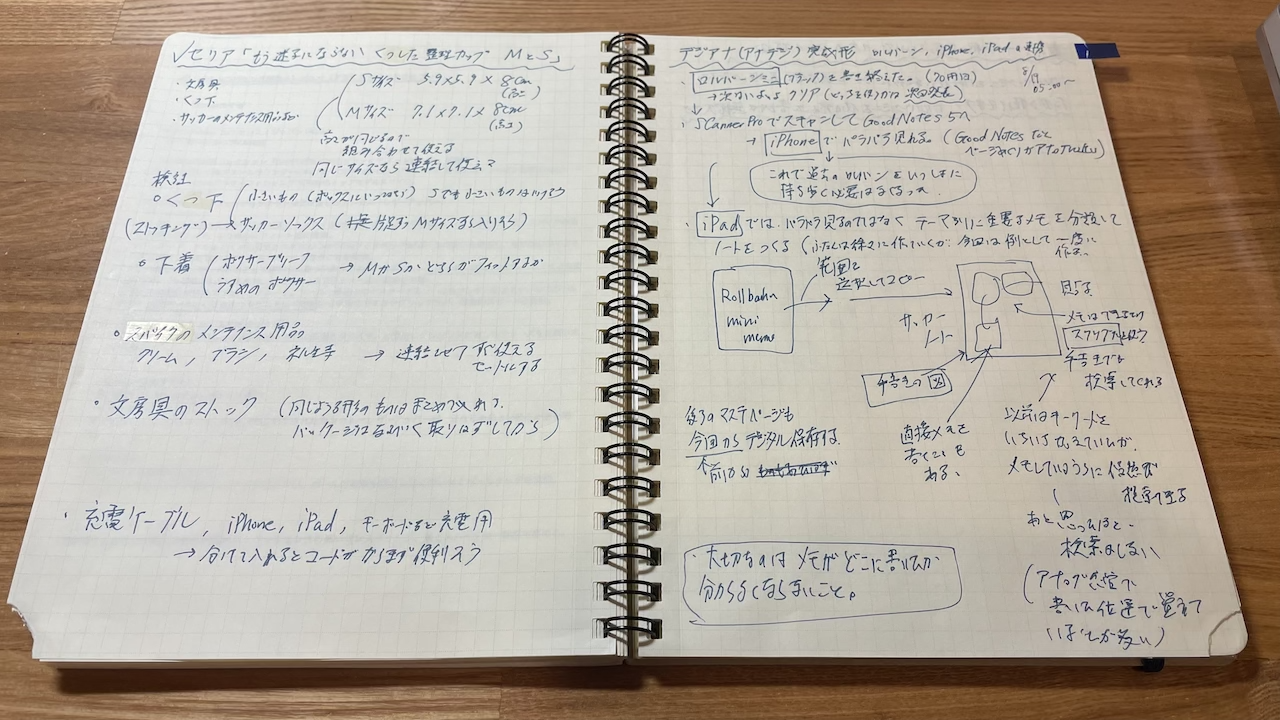 セリア「 くつした整理カップ MとS」
・文房具
・くつ下
・サッカーのメンテナンス用品
Sサイズ 5.9×5.9×8cm
(高さ)
Mサイズ 7.1×7.1×8cm
(高さ)
高さが同じなので
組み合わせて使える
同じサイズなら連結して使える
検証
くつ下 小さいもの Sでも小さいものは
(ストッキング)→サッカーソックス Mサイズなら入りそう
下着 ボクサーブリーフ
うすめのボクサー
→MかSか、どちらがフィットするか
・スパイクのメンテナンス用品
クリーム、ブラシ、 → 連結させてすぐ使える
・文房具のストック (同じような形のものはまとめて入れる。
パッケージはなるべく取りはずしてから)
・充電ケーブル, iPhone, iPad, キーボードなど充電用
→分けて入れるとコードがからまず便利そう
デジアナ(アナデジ) ロルバーン, iPhone, iPadの
・ロルバーンミニ(ブラック)を書き終えた。(70冊目)
8/19
05:00〜
→次はいよいよクリア
・Scanner ProでスキャンしてGoodNotes 5へ
→iPhoneでパラパラ見れる。(Good Notesだと
ページめくりが
これで過去のロルバーンをいっしょに
持ち歩く必要はなくなった
・iPadでは、パラパラ見るのではなく テーマ別に重要なメモを分類して
ノートをつくる (ふだんは徐々に作っていくが、今回は例として一度に
作る。
範囲を
選択してコピー
Rollbahn
mini
memo
サッカー
ノート
メモはできるだけ
スクリブルを使う
手書きでも
検索してくれる
手書きの図
後ろのマステページも
今回からデジタル保存する
直接メモを
書くことも
ある、
以前はキーワードを
いちいち 考えていたが、
メモしているうちに
検索できる
あと思ったほど、
検索はしない
(アナログ感覚で
書いた位置で覚えて
いることが多い)
・大切なのはメモがどこに書いたか
分からなくならないこと。